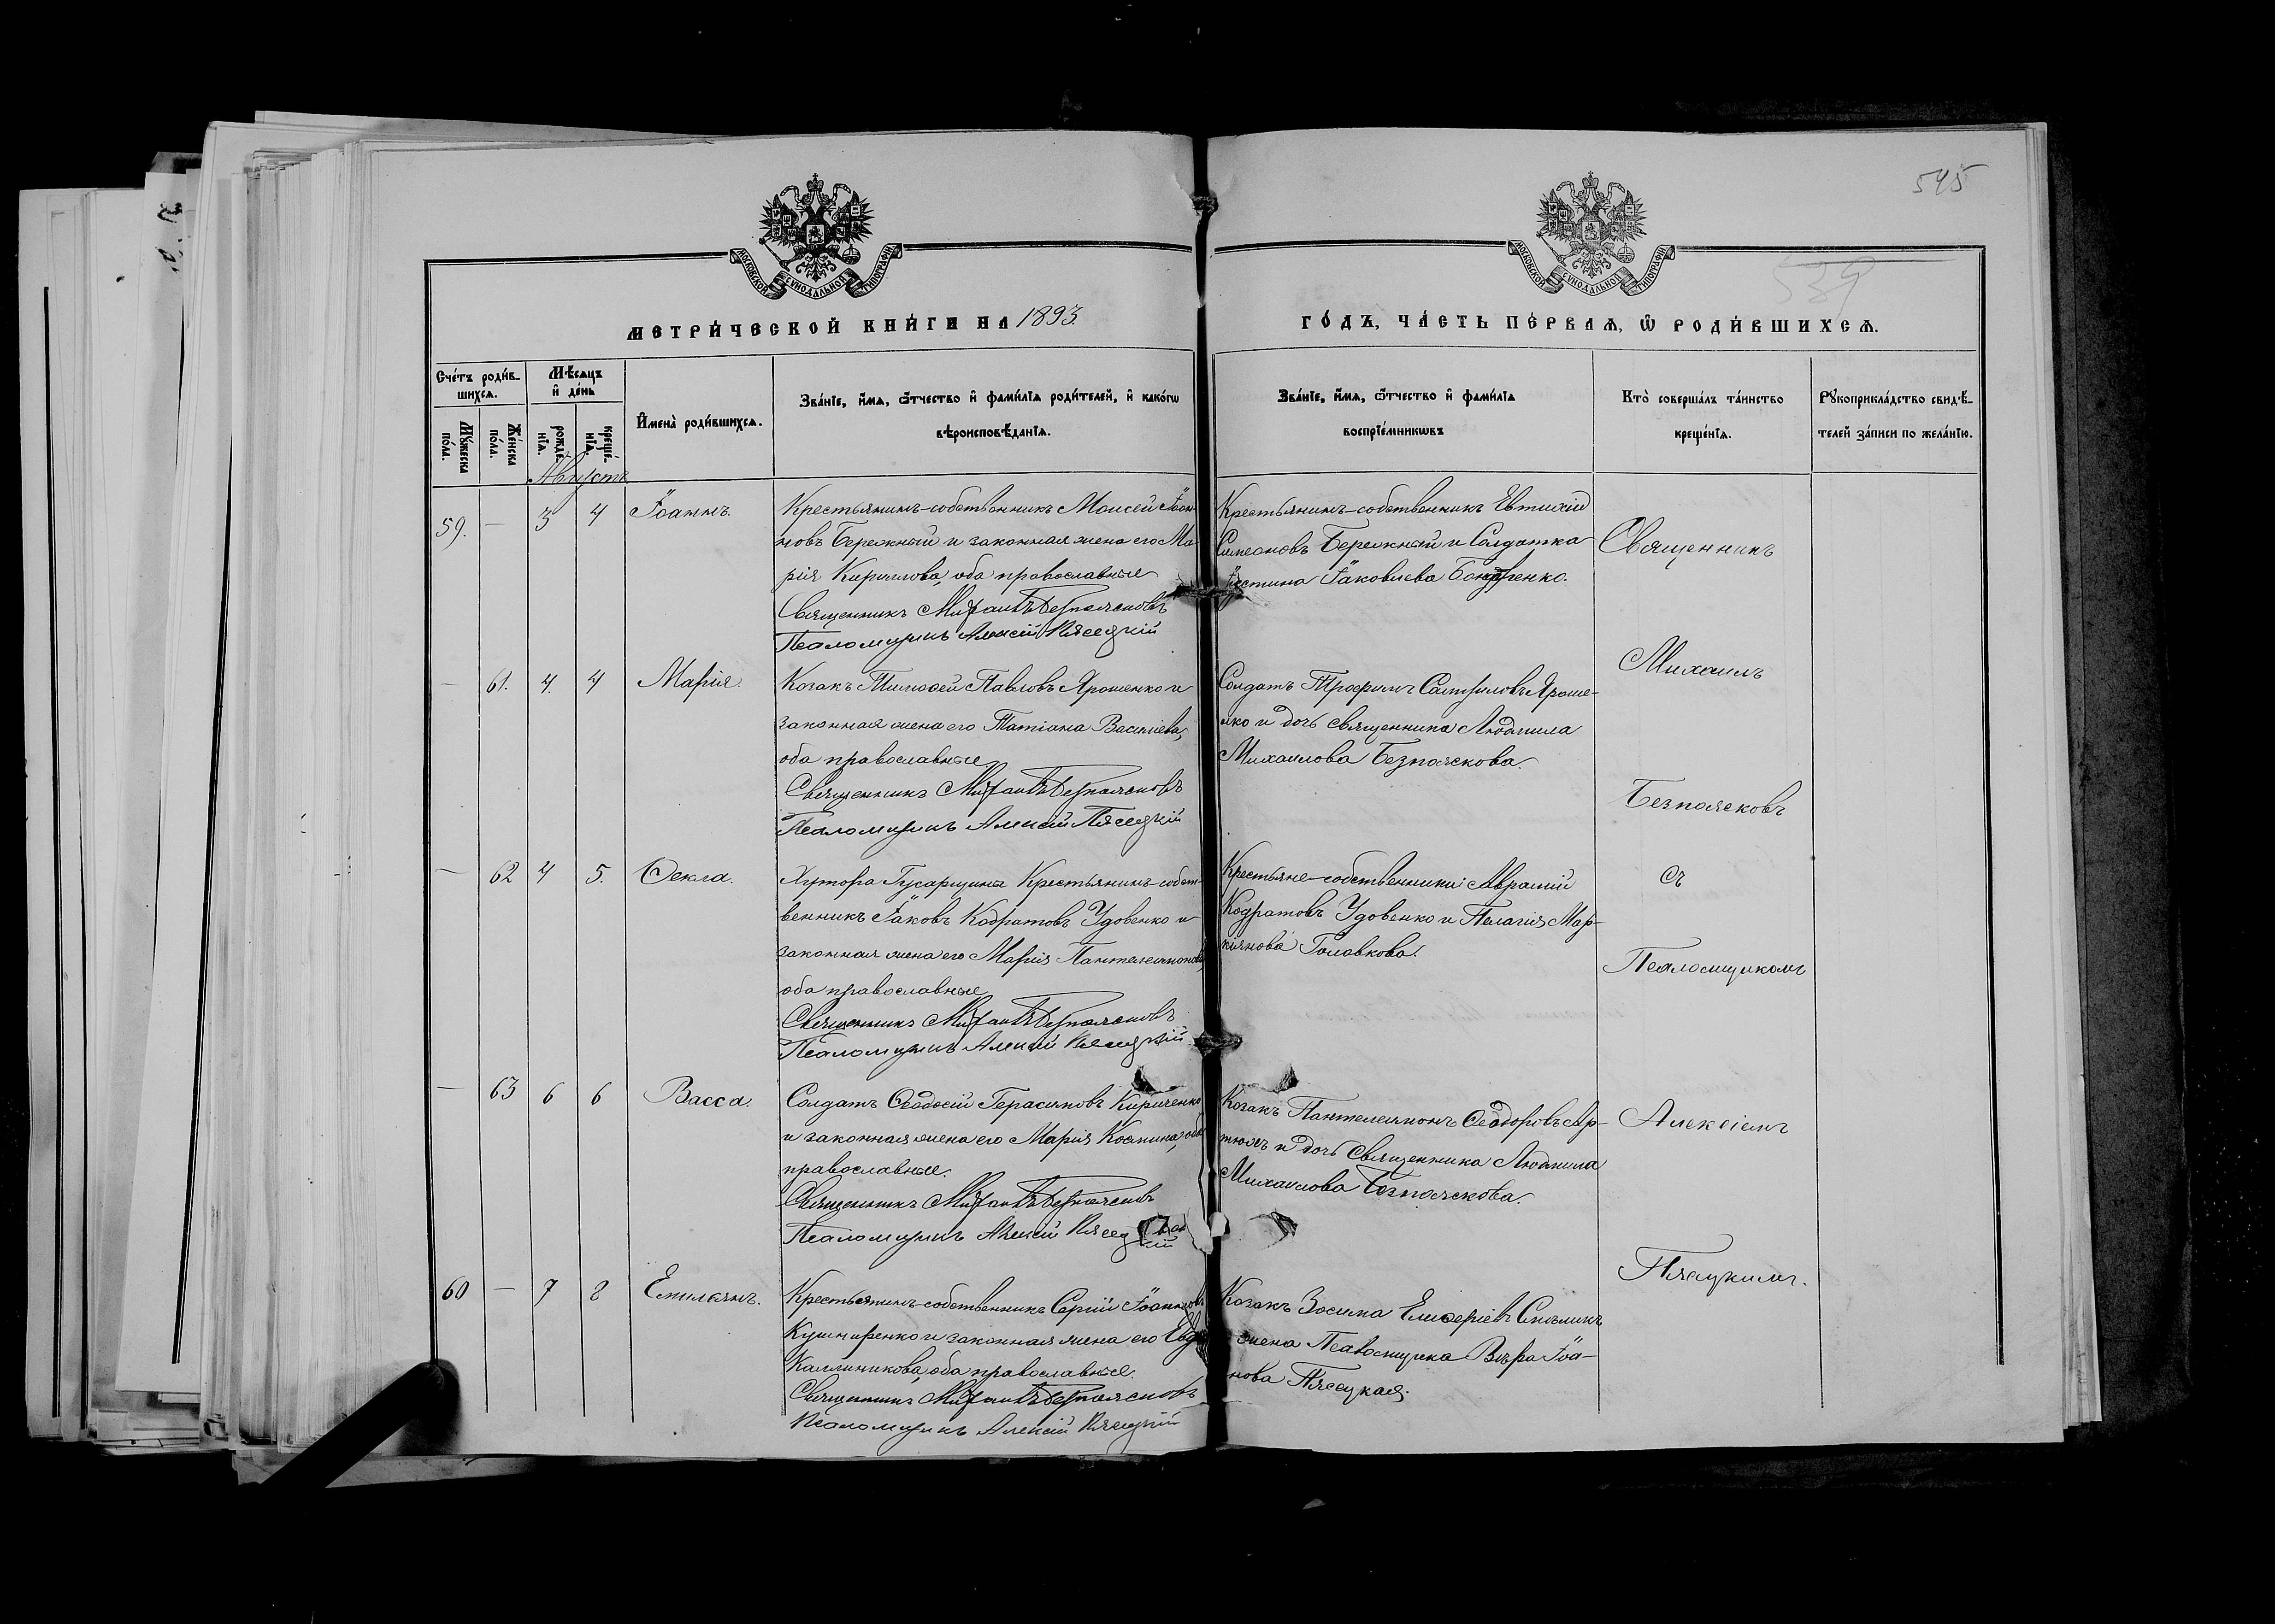 545
539
МОСКОВСКОЙ СѴНОДАЛЬНОЙ ТИПОГРАФІИ
МОСКОВСКОЙ СѴНОДАЛЬНОЙ ТИПОГРАФІИ
МЕТРИ́ЧЕСКОЙ КНИ́ГИ НА 1893.
ГО́ДЪ, ЧА́СТЬ ПЕ́РВАѦ, Ѽ РОДИ́ВШИХСѦ.
Сче́тъ роди́в-
шихсѧ.
Мѣ́сѧцъ
и҆ де́нь
Мꙋ́жеска
по́ла.
Же́нска
по́ла.
рожде́-
нїѧ.
креще́-
нїѧ.
И҆мена̀ роди́вшихсѧ.
Зва́нїе, и҆́мѧ, ѻ҆́тчество и҆ фами́лїѧ роди́телей, и҆ како́гѡ
вѣроисповѣ́данїѧ.
Зва́нїе, и҆́мѧ, ѻ҆́тчество и҆ фами́лїѧ
воспрїе́мникѡвъ
Кто̀ соверша́лъ та́инство
креще́нїѧ.
Рꙋкоприкла́дство свидѣ́-
телей за́писи по жела́нїю.
Августъ
59. — 3 4 Іоаннъ.
Крестьянинъ-собственникъ Моисей Іоан-
новъ Бережный и законная жена его Ма-
рія Кириллова, оба православные
Священникъ Михаилъ Безпоясковъ
Псаломщикъ Алексій Пясецкій
Крестьянинъ-собственникъ Евтихій
Симеоновъ Бережный и Солдатка
Іустина Іаковлева Бондаренко.
— 61. 4. 4 Марія.
Козакъ Тимоѳей Павловъ Ярошенко и
законная жена его Татіана Васильева,
оба православные
Священникъ Михаилъ Безпоясковъ
Псаломщикъ Алексій Пясецкій
Солдатъ Трофимъ Ярошен-
ко и дочь священника Людмила
Михаилова Безпояскова.
— 62 4 5. Ѳекла.
Хутора Гусарщина Крестьянинъ-собст-
венникъ Іаковъ Кодратовъ Удовенко и
законная жена его Марія Пантелеимонова,
оба православные
Священникъ Михаилъ Безпоясковъ
Псаломщикъ Алексій Пясецкій
Крестьяне-собственники: Аврамій
Кодратовъ Удовенко и Пелагія Мар-
кіянова Головкова.
— 63 6 6 Васса.
Солдатъ Ѳеодосій Герасимовъ Кириченко
и законная жена его Марія Космина, оба
православные.
Священникъ Михаилъ Безпоясковъ
Псаломщикъ Алексій Пясецкій
Козакъ Пантелеимонъ Ѳеодоровъ Ар-
тюхъ и дочь Священника Людмила
Михаилова Безпояскова.
60 — 7 8 Емиліанъ.
Крестьянинъ-собственникъ Сергій Іоанновъ
Кушниренко и законная жена его
Каллиникова, оба православные.
Священникъ Михаилъ Безпоясковъ
Псаломщикъ Алексій Пясецкій
Козакъ Зосима Елевѳеріевъ
жена Псаломщика Вѣра Іоа-
нова Пясецкая.
Священникъ
Михаилъ
Безпоясковъ
съ
Псаломщикомъ
Алексіемъ
Пясецкимъ.